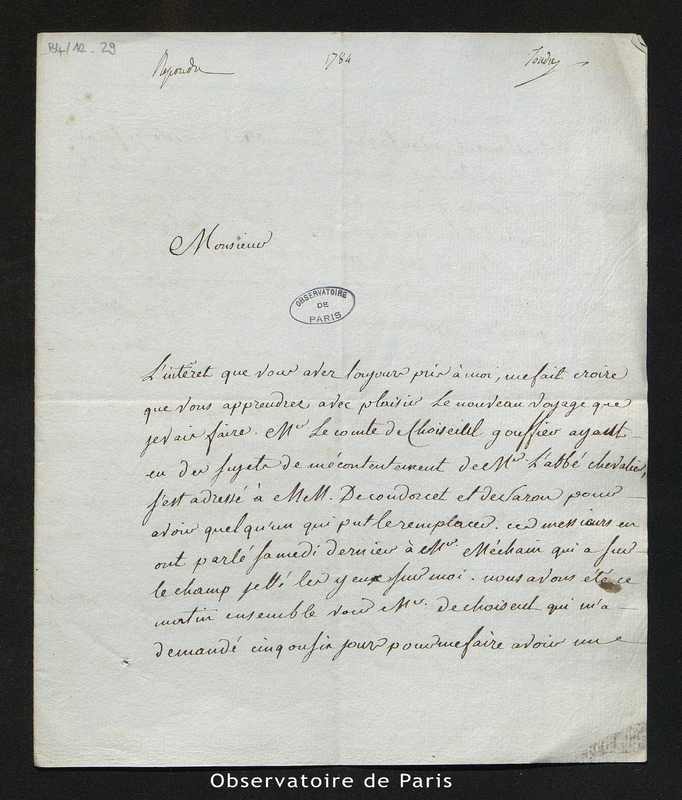 B4/12 - 29
Repondu 1784 Tondu
Monsieur
OBSERVATOIRE
DE
PARIS
L'intérêt que vous avez toujours pris à moi, me fait croire
que vous apprendrez avec plaisir le nouveau voyage que
je vais faire. Mr Le comte de Choiseul gouffier ayant
eu des sujets de mécontentement de Mr L'abbé chevalier,
s'est adressé à MM. De condorcet et de pour
avoir quelqu'un qui put le remplacer. ces messieurs en
ont parlé samedi dernier à Mr. Méchain qui a sur
le champ jetté les yeux sur moi. nous avons été ce
matin ensemble voir Mr. de choiseul qui m'a
demandé cinq ou six jours pour me faire avoir une
Observatoire de Paris